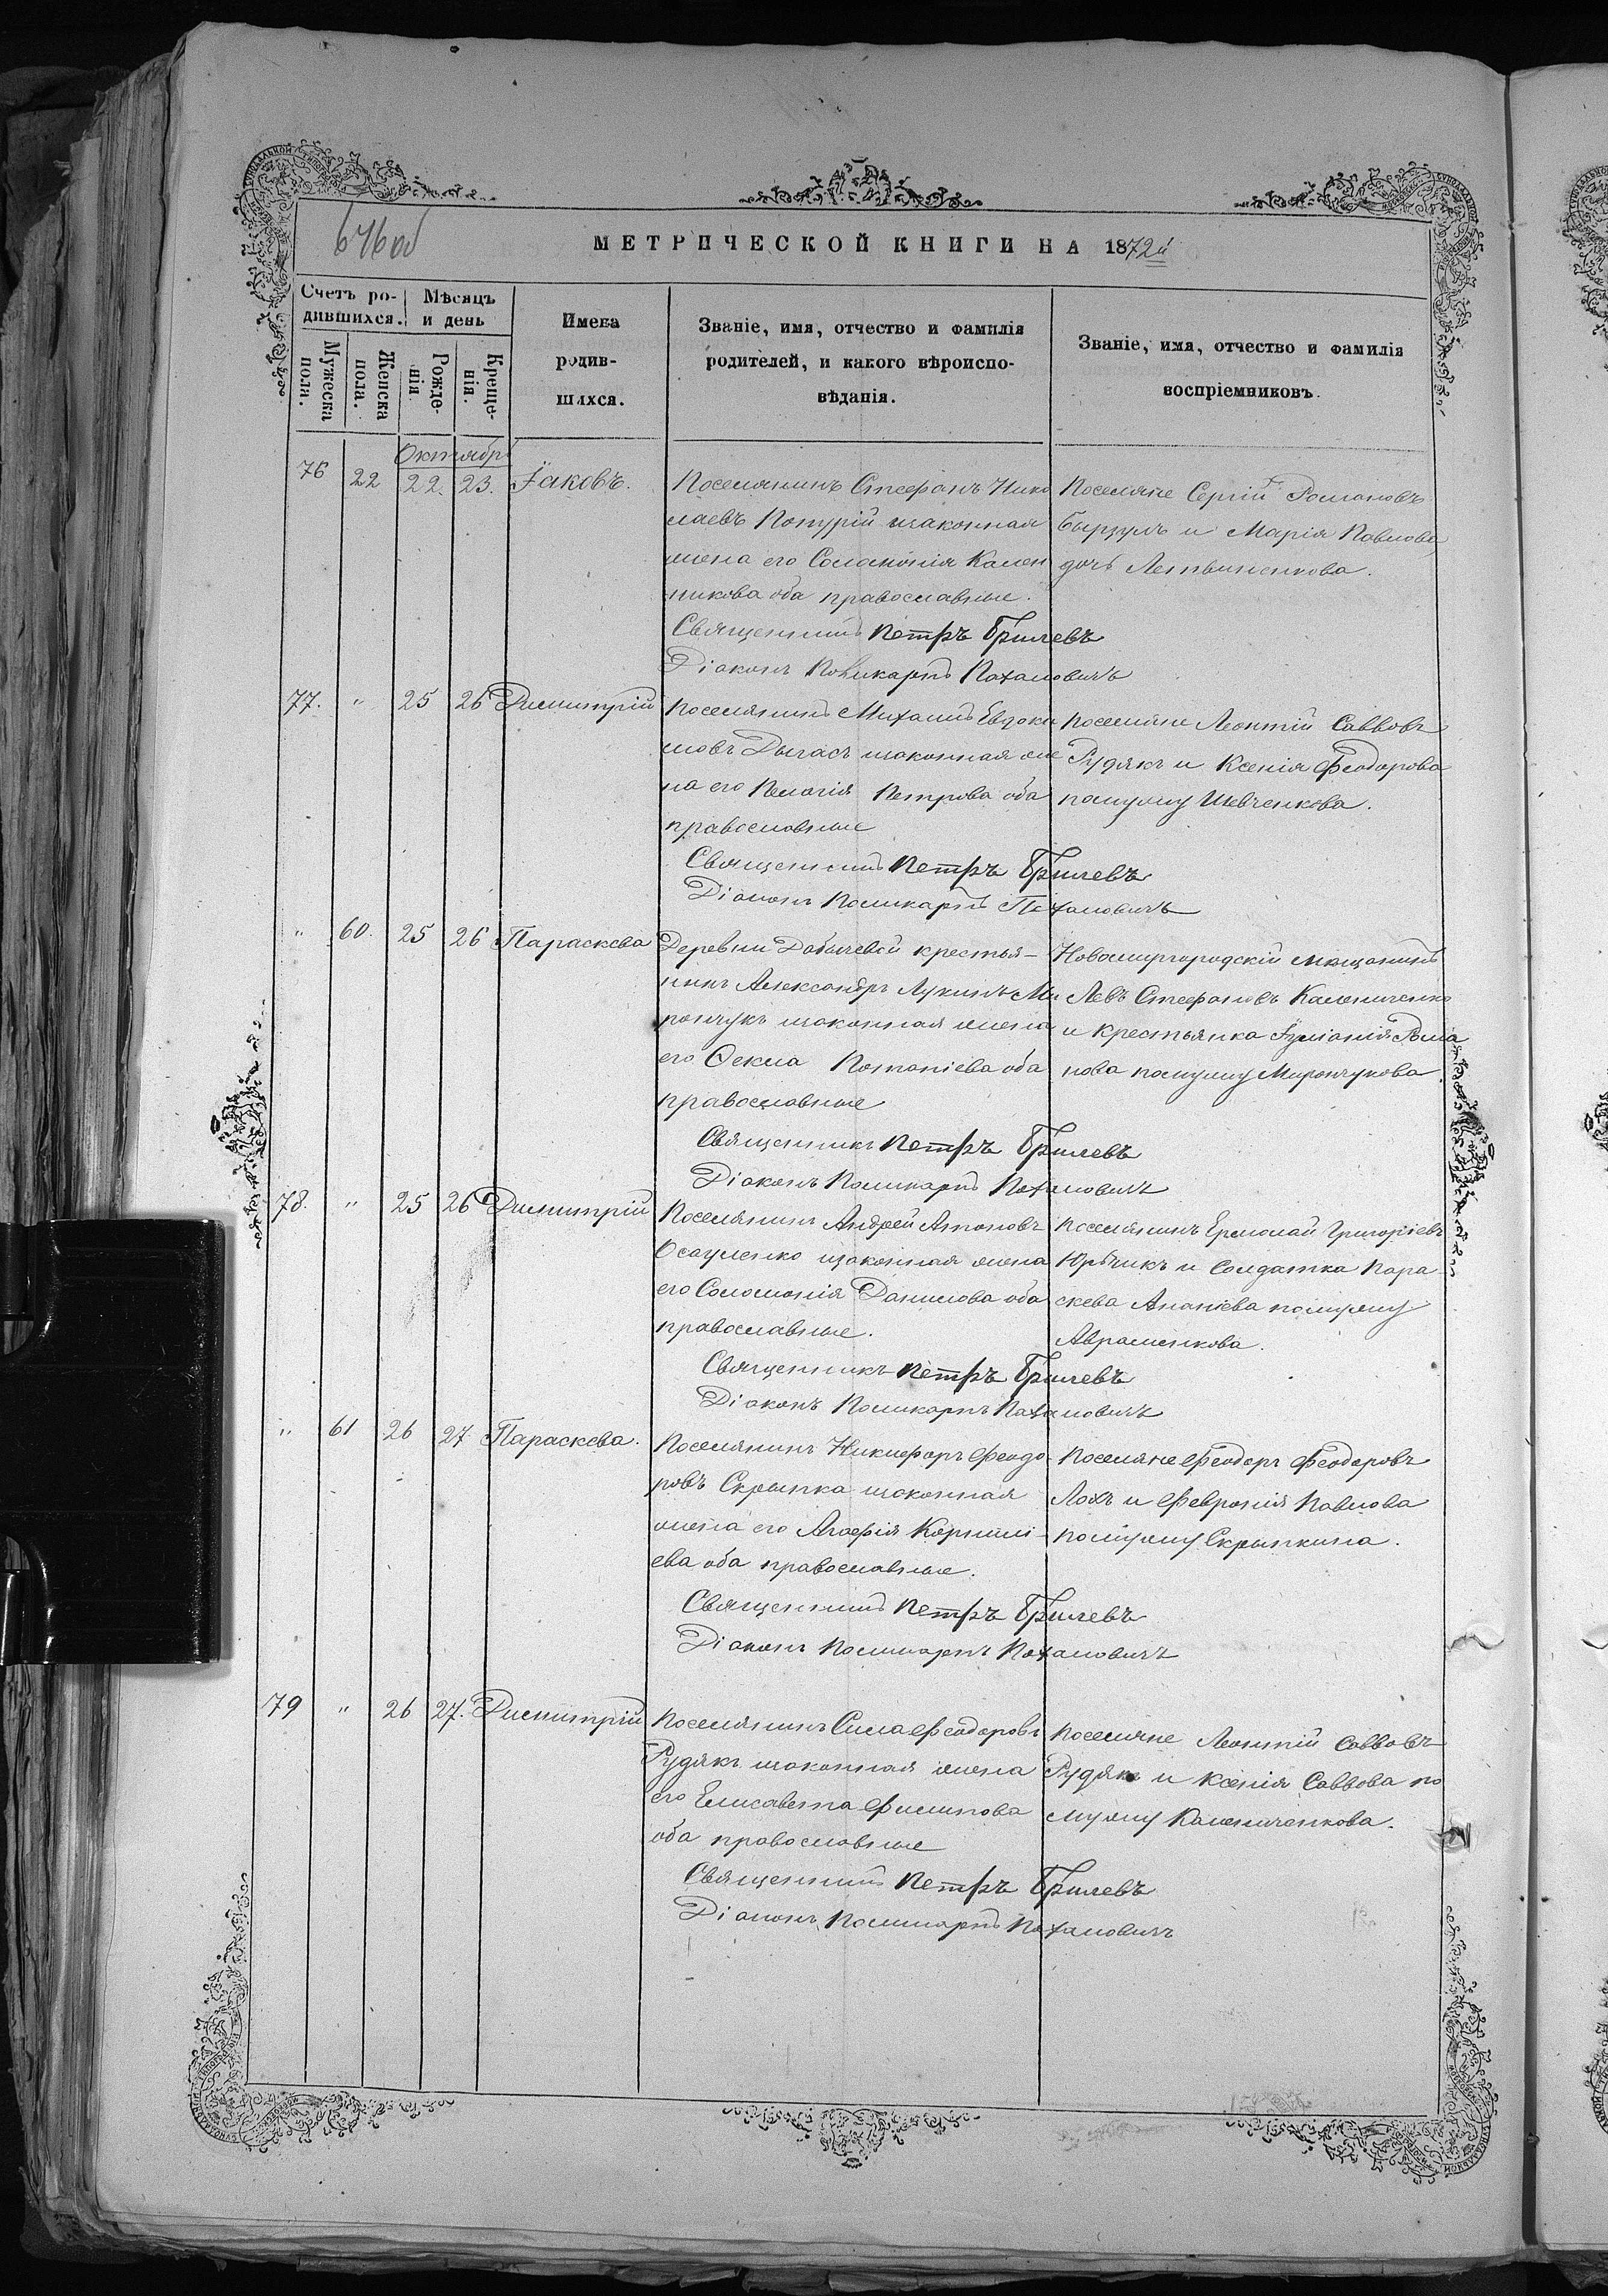 646 об
МЕТРИЧЕСКОЙ КНИГИ НА 1872й
Счетъ ро-
дившихся.
Мѣсяцъ
и день
Имена
родив-
шихся.
Званіе, имя, отчество и фамилія
родителей, и какого вѣроиспо-
вѣданія.
Званіе, имя, отчество и фамилія
воспріемниковъ.
Мужеска
пола.
Женска
пола.
Рожде-
нія
Креще-
нія.
Октябр
76 22 22. 23. Іаковъ.
Поселянинъ Стефанъ Нико
лаевъ законная
жена его Соломонія Камен
никова оба православные.
Священникъ Петръ Брилевъ
Діаконъ Поликарпъ Пахаловичъ
Поселяне Сергій Романовъ
и Марія Павлова
дочь Летвиненкова.
77. " 25 26 Димитрій
Поселянинъ Михаилъ Евдоки
мовъ законная же
на его Пелагія Петрова оба
православные
Священникъ Петръ Брилевъ
Діаконъ Поликарпъ Пахаловичъ
поселяне Леонтій Саввовъ
Рудякъ и Ксенія Феодорова
помужу Шевченкова.
" 60. 25 26 Параскева
Деревни крестья-
нинъ Александръ Лукинъ Ми
рончукъ законная жена
его Ѳекла Потапіева оба
православные
Священникъ Петръ Брилевъ
Діаконъ Поликарпъ Пахаловичъ
Новомиргородскій мещанинъ
Левъ Стефановъ Калениченко
и крестьянка Іуліанія Рома
нова помужу Мирончукова
78. " 25 26 Димитрій
Поселянинъ Андрей Агаповъ
Осауленко законная жена
его Соломонія Данилова оба
православные.
Священникъ Петръ Брилевъ
Діаконъ Поликарпъ Пахаловичъ
Поселянинъ Ермолай Григоріевъ
Юрчикъ и Солдатка Пара
скева Ананіева помужу
Авраменкова.
" 61 26 27 Параскева.
Поселянинъ Никифоръ Феодо-
ровъ Скрыпка законная
жена его Агафія Корнилі-
ева оба православные.
Священникъ Петръ Брилевъ
Діаконъ Поликарпъ Пахаловичъ
Поселяне Феодоръ Феодоровъ
Лохъ и Февронія Павлова
помужу Скрыпкина.
79 " 26 27. Димитрій
Поселянинъ Сила Феодоровъ
Рудякъ законная жена
его Елисавета Филипова
оба православные
Священникъ Петръ Брилевъ
Діаконъ Поликарпъ Пахаловичъ
Поселяне Леонтій Саввовъ
Рудякъ и Ксенія Саввова по
мужу Каленниченкова.